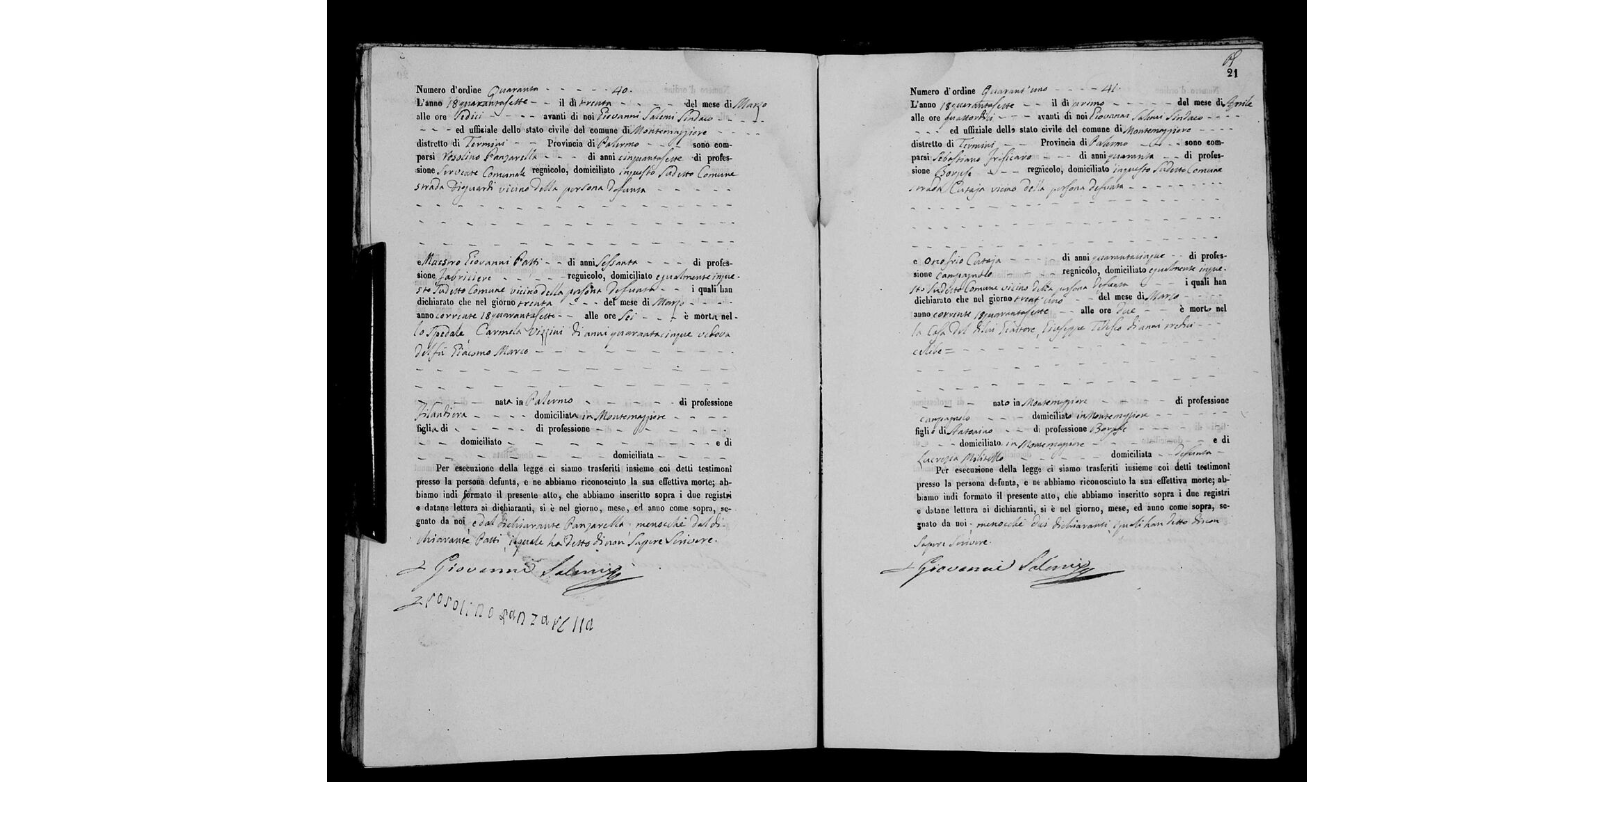 Numero d'ordine Quaranta 40.
L'anno 18quarantasette il di trenta del mese di Marzo
alle ore Sedici avanti di noi Giovanni Salemi Sindaco
ed uffiziale dello stato civile del comune di Montemaggiore
distretto di Termini Provincia di Palermo sono com-
parsi Rosolino Panzarella di anni cinquantasette di profes-
sione Serviente Comunale regnicolo, domiciliato in questo sudetto Comune
strada vicino della persona defunta
e Maestro Giovanni Patti di anni sessanta di profes-
sione regnicolo, domiciliato egualmente inque-
sto sudetto Comune vicino della persona defunta i quali han
dichiarato che nel giorno trenta del mese di Marzo
anno corrente 18quarantasette alle ore Sei è morta nel-
lo Spedale Carmela Vizzini di anni quarantacinque vedova
del fù Giacomo Marco
nata in Palermo di professione
Filandiera domiciliata in Montemaggiore
figlia di di professione
domiciliato e di
domiciliata
Per esecuzione della legge ci siamo trasferiti insieme coi detti testimoni
presso la persona defunta, e ne abbiamo riconosciuto la sua effettiva morte; ab-
biamo indi formato il presente atto, che abbiamo inscritto sopra i due registri
e datane lettura ai dichiaranti, si è nel giorno, mese, ed anno come sopra, se-
gnato da noi, e dal dichiarante Panzarella menocchè dal di
chiarante Patti il quale ha detto di non Sapere Scrivere.
Giovanni Salemi
Rosolino Panzarella
21
Numero d'ordine Quarant'uno 41.
L'anno 18quarantasette il di primo del mese di Aprile
alle ore quattordici avanti di noi Giovanni Salemi Sindaco
ed uffiziale dello stato civile del comune di Montemaggiore
distretto di Termini Provincia di Palermo sono com-
parsi Sebastiano di anni quaranta di profes-
sione Borgese regnicolo, domiciliato in questo sudetto Comune
strada Cataja vicino della persona defunta
e Onofrio Cataja di anni quarantacinque di profes-
sione Campagnolo regnicolo, domiciliato egualmente inque-
sto sudetto Comune vicino della persona defunta i quali han
dichiarato che nel giorno trent'uno del mese di Marzo
anno corrente 18quarantasette alle ore due è morto nel
la Casa del di lui Genitore, Giuseppe di anni
celibe
nato in Montemaggiore di professione
campagnolo domiciliato in Montemaggiore
figlio di di professione Borgese
domiciliato in Montemaggiore e di
Lucrezia Militello domiciliata defunta
Per esecuzione della legge ci siamo trasferiti insieme coi detti testimoni
presso la persona defunta, e ne abbiamo riconosciuto la sua effettiva morte; ab-
biamo indi formato il presente atto, che abbiamo inscritto sopra i due registri
e datane lettura ai dichiaranti, si è nel giorno, mese, ed anno come sopra, se-
gnato da noi menocchè dei dichiaranti quali han detto di non
Sapere Scrivere.
Giovanni Salemi